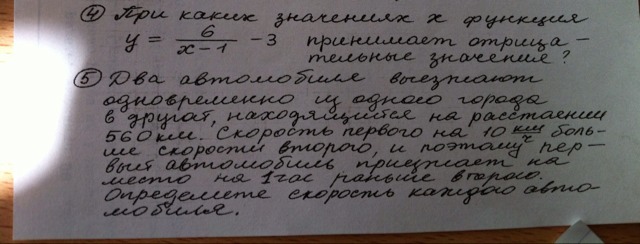 ④ При каких значениях x функция
y = 6/(x-1) - 3 принимает отрица-
тельные значения?
⑤ Два автомобиля выезжают
одновременно из одного города
в другой, находящийся на расстоянии
560 км. Скорость первого на 10 км/ч боль-
ше скорости второго, и поэтому пер-
вый автомобиль приезжает на
место на 1 час раньше второго.
Определите скорость каждого авто-
мобиля.